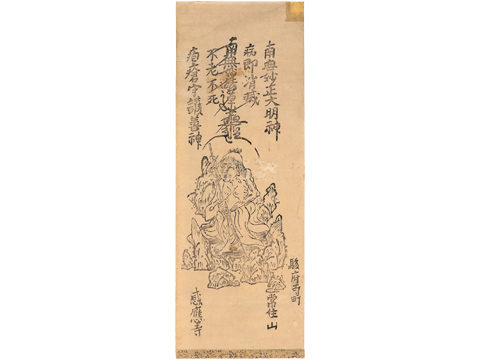 南無妙正大明神
病即消滅
南無妙法蓮華經
不老不死
疱瘡守護善神
駿府寺町
常住山
感應寺